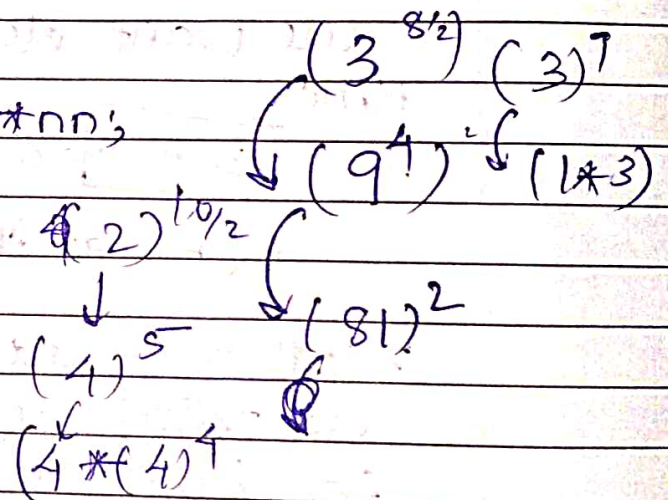 (3^8/2) (3)^7
*nn;
(9^4) (1*3)
(2)^10/2
(81)^2
(4)^5
(4*(4)^4